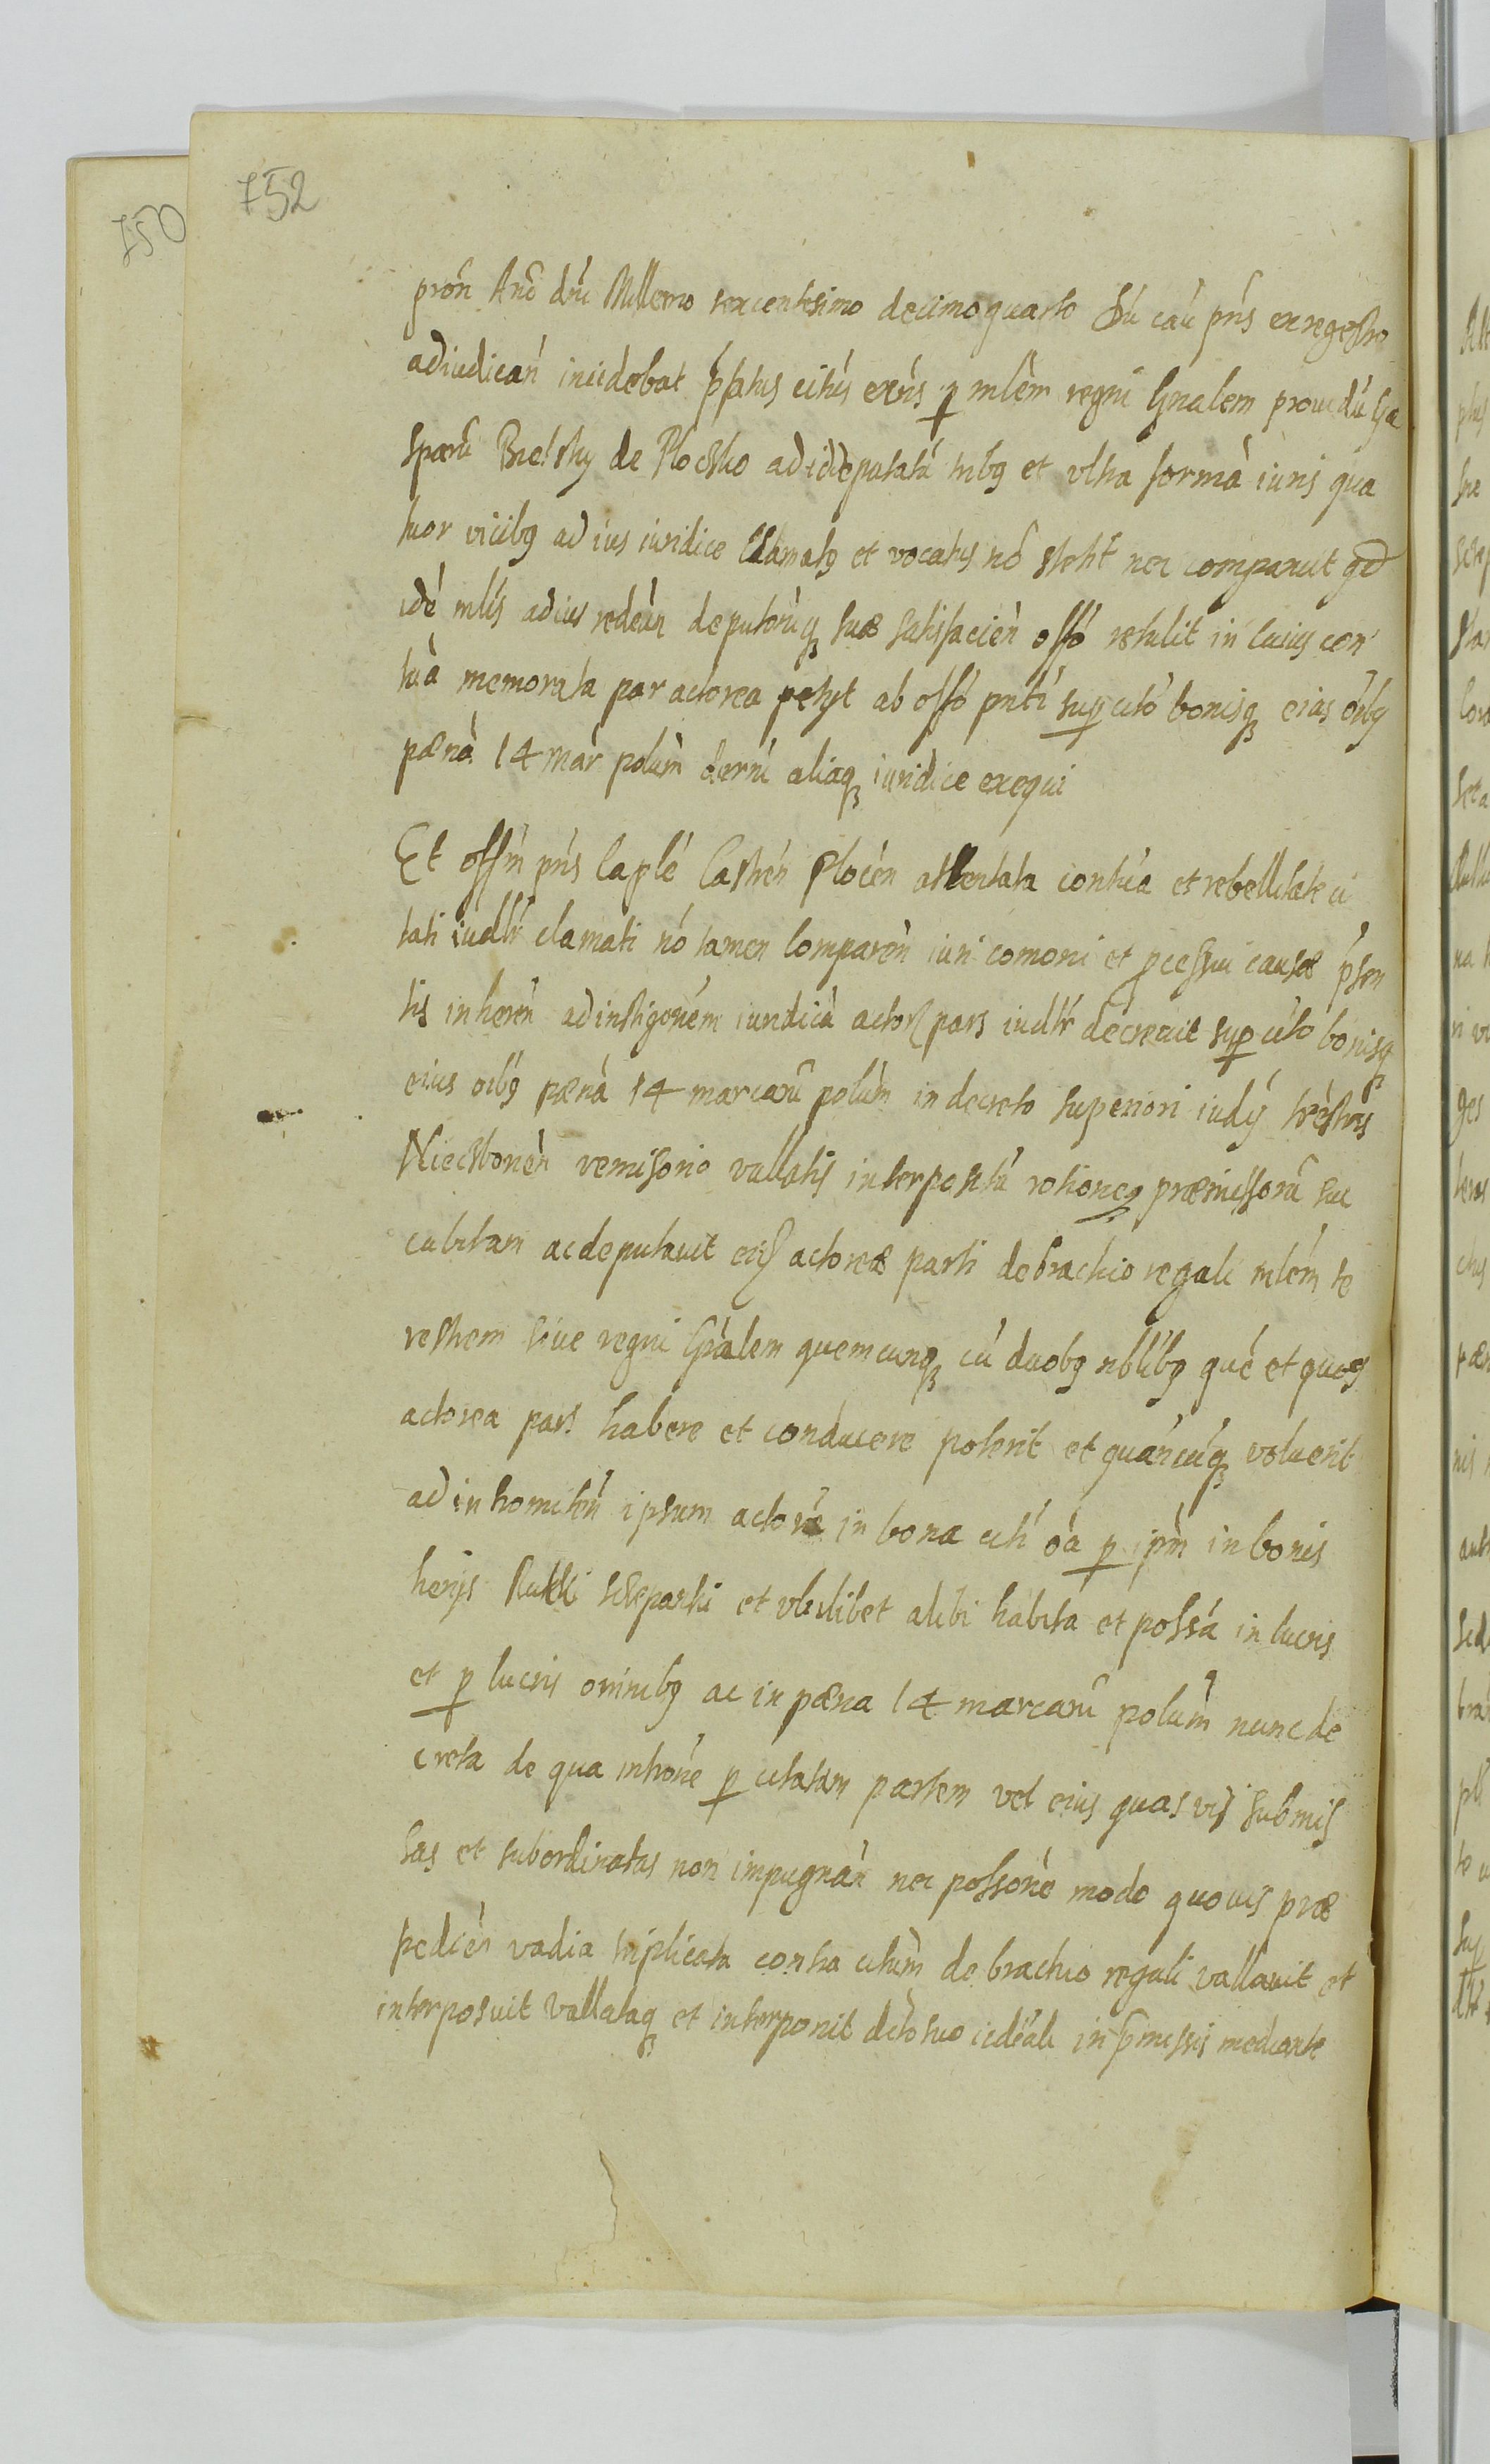 752
750
pron Anō dni Millemo sexcentesimo decimoquarto Dū cau pns ex regestro
adiudican incidebat pfatus citus extis p mlem regni Gnalem prouidū Ga
sparū Bielsky de Plocko ad id deputatū tribq et vltra forma iuris qua
tuor vicibq ad ius iuridice clamatq et vocatus nō stetit nec comparuit qd
idē mlis ad ius redeun deputoniq suæ satisfacien offō retulit in cuius con
tua memorata par actorea petyt ab offō pnti sup citō bonisq eius oibq
pœna 14 mar polum derni aliaq iuridice exequi
Et offm pns Caplē Castren Plocen attentata contūa et rebellitate ci
tati iudltr clamati nō tamen comparen iuri comoni et pcessui causæ psen
tis inheren ad instigonem iuridica actor pars iudltr decreuit sup citō bonisq
eius oibq pœna 14 marcarū polum in decreto superiori iudy trestris
Niecstonen remisorio vallatis interpositū rationeq præmissorū suc
cubitam ac deputauit eid actoreæ parti de brachio regali mlem te
restrem siue regni Gnalem quemcunq cū duobq nblibq quē et quos
actorea pars habere et conducere poterit et quancūq voluerit
ad intromitten ipsum actorē in bona citi oa p ipm in bonis
herijs Rutki et vbilibet alibi habita et possa in lucris
et p lucris omnibq ac in pœna 14 marcarū polum nunc de
creta de qua intronē p citatam partem vel eius quas vis submis
sas et subordinatas non impugnan nec possonē modo quouis præ
pedien vadia triplicata contra citum de brachio regali vallauit et
interposuit vallataq et interponit dcto suo iudcali in pmissis mediante